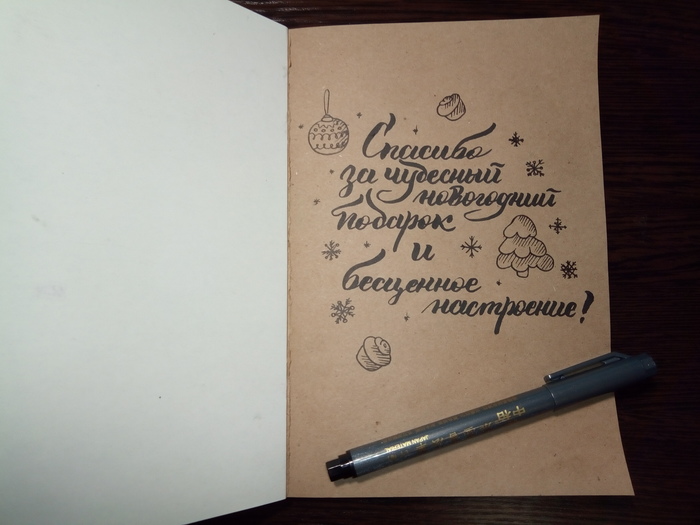 Спасибо
за чудесный
новогодний
подарок
и
бесценное
настроение!
JAPAN MATERIAL